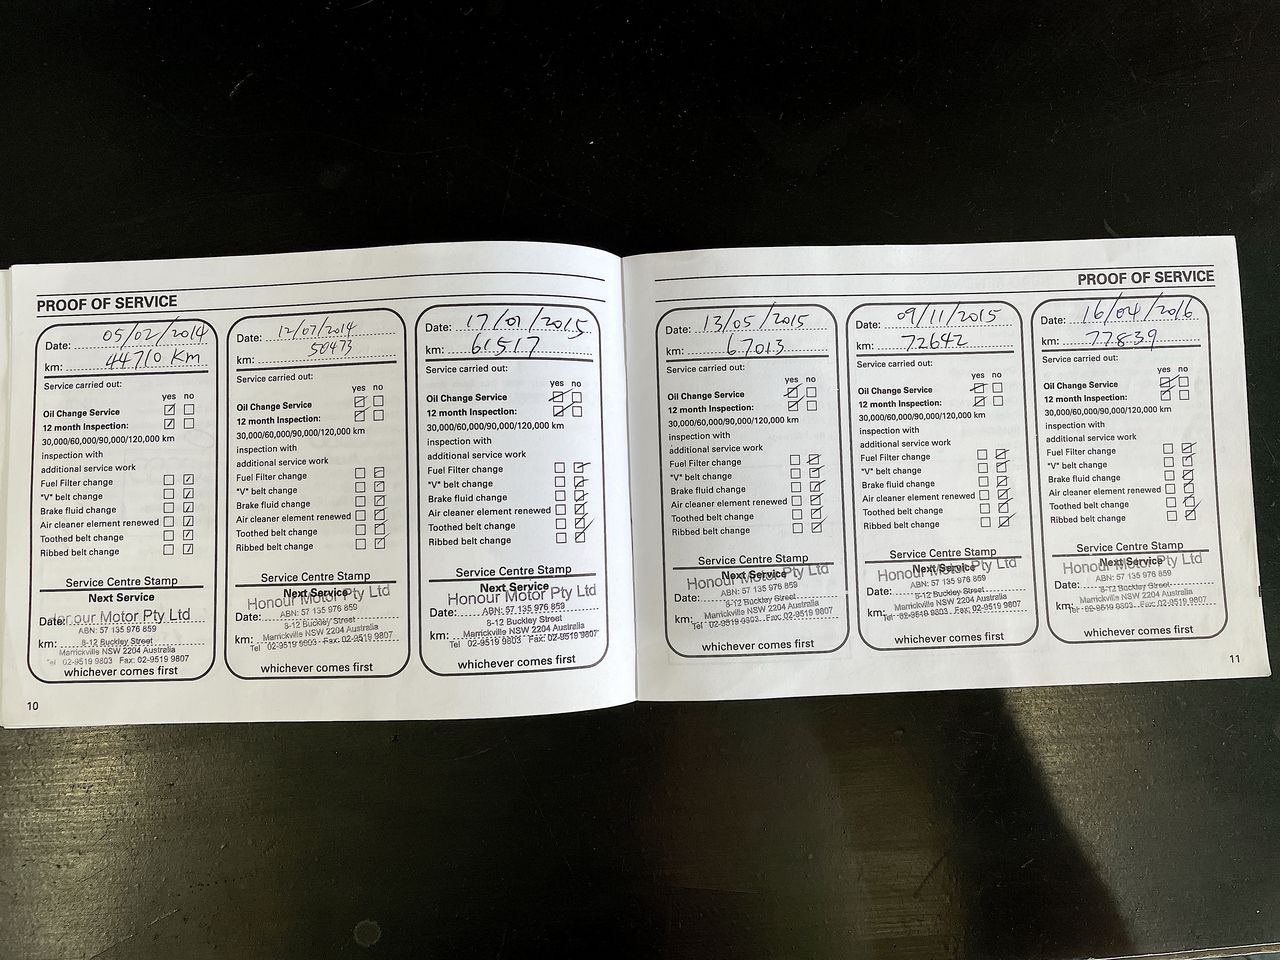 PROOF OF SERVICE
Date: 05/02/2014
km: 44710 Km
Service carried out:
yes no
Oil Change Service
12 month Inspection:
30,000/60,000/90,000/120,000 km
inspection with
additional service work
Fuel Filter change
"V" belt change
Brake fluid change
Air cleaner element renewed
Toothed belt change
Ribbed belt change
Service Centre Stamp
Next Service
Date:
Honour Motor Pty Ltd
ABN: 57 135 976 859
8-12 Buckley Street
km:
Marrickville NSW 2204 Australia
Tel 02-9519 9803 Fax: 02-9519 9807
whichever comes first
10
Date: 12/07/2014
km: 50473
Service carried out:
yes no
Oil Change Service
12 month Inspection:
30,000/60,000/90,000/120,000 km
inspection with
additional service work
Fuel Filter change
"V" belt change
Brake fluid change
Air cleaner element renewed
Toothed belt change
Ribbed belt change
Service Centre Stamp
Next Service
Honour Motor Pty Ltd
ABN: 57 135 976 859
Date:
8-12 Buckley Street
Marrickville NSW 2204 Australia
km:
Tel 02-9519 9803 Fax: 02-9519 9807
whichever comes first
Date: 17/01/2015
km: 61517
Service carried out:
yes no
Oil Change Service
12 month Inspection:
30,000/60,000/90,000/120,000 km
inspection with
additional service work
Fuel Filter change
"V" belt change
Brake fluid change
Air cleaner element renewed
Toothed belt change
Ribbed belt change
Service Centre Stamp
Next Service
Honour Motor Pty Ltd
Date:
ABN: 57 135 976 859
8-12 Buckley Street
Marrickville NSW 2204 Australia
km:
Tel 02-9519 9803 Fax: 02-9519 9807
whichever comes first
PROOF OF SERVICE
Date: 13/05/2015
km: 67013
Service carried out:
yes no
Oil Change Service
12 month Inspection:
30,000/60,000/90,000/120,000 km
inspection with
additional service work
Fuel Filter change
"V" belt change
Brake fluid change
Air cleaner element renewed
Toothed belt change
Ribbed belt change
Service Centre Stamp
Next Service
Honour Motor Pty Ltd
ABN: 57 135 976 859
Date:
8-12 Buckley Street
Marrickville NSW 2204 Australia
km:
Tel 02-9519 9803 Fax: 02-9519 9807
whichever comes first
Date: 09/11/2015
km: 72642
Service carried out:
yes no
Oil Change Service
12 month Inspection:
30,000/60,000/90,000/120,000 km
inspection with
additional service work
Fuel Filter change
"V" belt change
Brake fluid change
Air cleaner element renewed
Toothed belt change
Ribbed belt change
Service Centre Stamp
Next Service
Honour Motor Pty Ltd
ABN: 57 135 976 859
Date:
8-12 Buckley Street
Marrickville NSW 2204 Australia
km:
Tel 02-9519 9803 Fax: 02-9519 9807
whichever comes first
Date: 16/04/2016
km: 77839
Service carried out:
yes no
Oil Change Service
12 month Inspection:
30,000/60,000/90,000/120,000 km
inspection with
additional service work
Fuel Filter change
"V" belt change
Brake fluid change
Air cleaner element renewed
Toothed belt change
Ribbed belt change
Service Centre Stamp
Next Service
Honour Motor Pty Ltd
ABN: 57 135 976 859
Date:
8-12 Buckley Street
Marrickville NSW 2204 Australia
km:
Tel 02-9519 9803 Fax: 02-9519 9807
whichever comes first
11